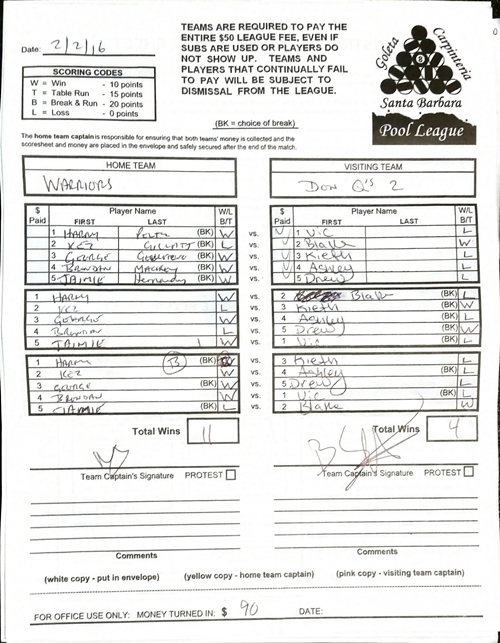 Date: 2/2/16
TEAMS ARE REQUIRED TO PAY THE
ENTIRE $50 LEAGUE FEE, EVEN IF
SUBS ARE USED OR PLAYERS DO
NOT SHOW UP. TEAMS AND
PLAYERS THAT CONTINUALLY FAIL
TO PAY WILL BE SUBJECT TO
DISMISSAL FROM THE LEAGUE.
Goleta Carpinteria
Santa Barbara
Pool League
SCORING CODES
W = Win - 10 points
T = Table Run - 15 points
B = Break & Run - 20 points
L = Loss - 0 points
(BK = choice of break)
The home team captain is responsible for ensuring that both teams' money is collected and the
scoresheet and money are placed in the envelope and safely secured after the end of the match.
HOME TEAM VISITING TEAM
WARRIORS DON Q'S 2
$ Paid Player Name FIRST LAST W/L B/T $ Paid Player Name FIRST LAST W/L B/T
1 HARRY (BK) W vs. 1 Vic L
2 KEZ (BK) L vs. 2 Blake W
3 GEORGE (BK) W vs. 3 Kieth L
4 BRENDAN (BK) W vs. 4 Ashley L
5 JAIMIE (BK) W vs. 5 Drew L
1 HARRY W vs. 2 Blake (BK) L
2 KEZ L vs. 3 Kieth (BK) W
3 GEORGE W vs. 4 Ashley (BK) L
4 BRENDAN L vs. 5 Drew (BK) W
5 JAIMIE W vs. 1 Vic (BK) L
1 HARRY B (BK) vs. 3 Kieth L
2 KEZ W vs. 4 Ashley (BK) L
3 GEORGE (BK) W vs. 5 Drew L
4 BRENDAN W vs. 1 Vic (BK) L
5 JAMIE (BK) L vs. 2 Blake W
Total Wins 11 Total Wins 4
Team Captain's Signature PROTEST Team Captain's Signature PROTEST
Comments Comments
(white copy - put in envelope) (yellow copy - home team captain) (pink copy - visiting team captain)
FOR OFFICE USE ONLY: MONEY TURNED IN: $ 90 DATE: